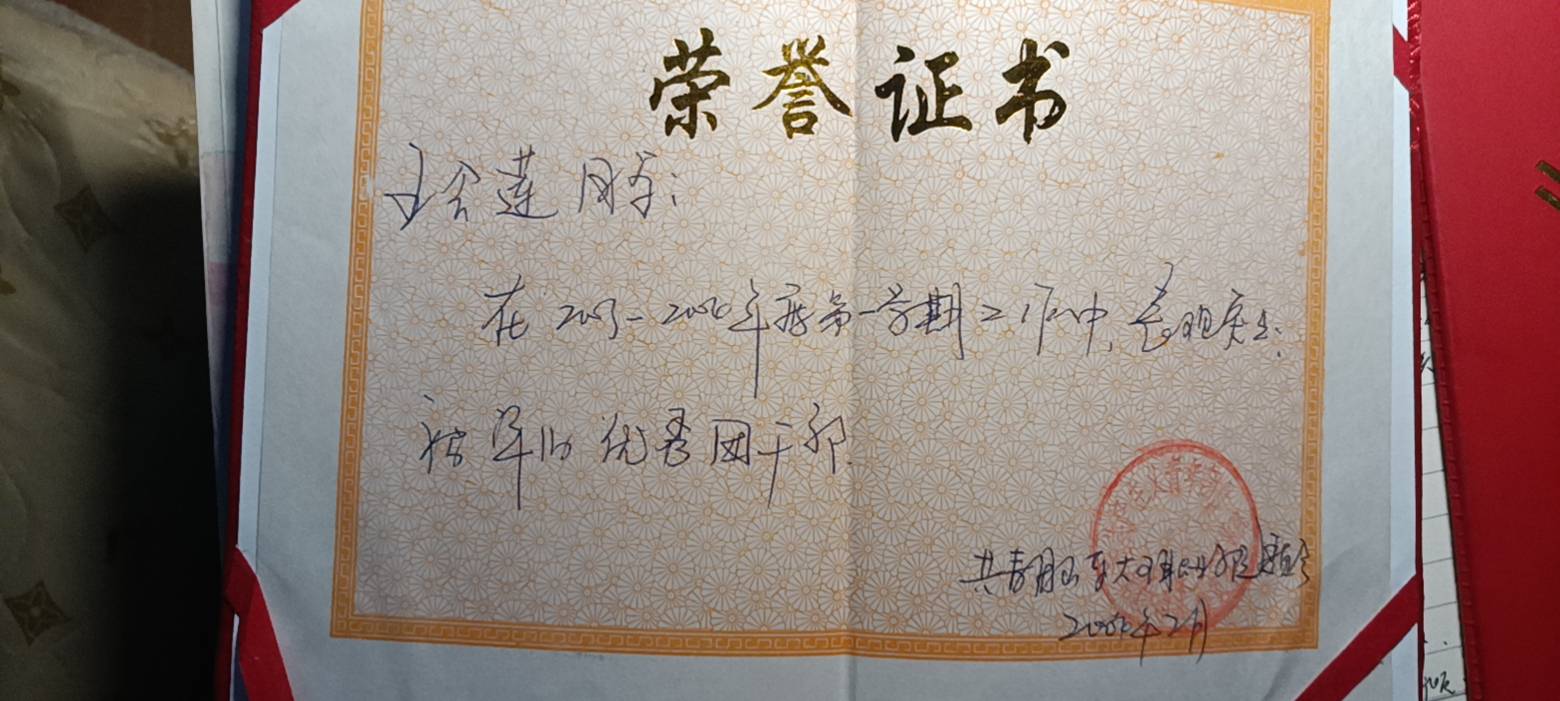 荣誉证书
王会莲同学:
在2005-2006年度第一学期工作中,表现突出,
被评为优秀团干部.
共青团山东大王职业学院
2006年2月